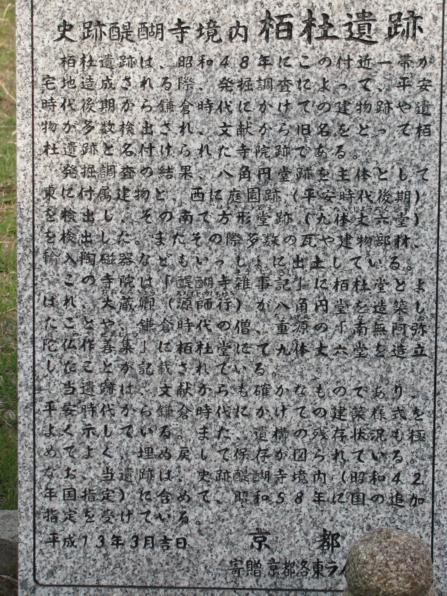 史跡醍醐寺境内 栢杜遺跡
栢杜遺跡は、昭和48年にこの付近一帯が
宅地造成される際、発掘調査によって、平安
時代後期から鎌倉時代にかけての建物跡や遺
物が多数検出され、文献から旧名をとって栢
杜遺跡と名付けられた寺院跡である。
発掘調査の結果、八角円堂跡を主体として
東に付属建物と、西に庭園跡（平安時代後期）
を検出し、その南で方形堂跡（九体丈六堂）
を検出した。またその際多数の瓦や建物部材、
輸入陶磁器などもいっしょに出土している。
この寺院は「醍醐寺雑事記」に栢杜堂とよ
ばれ、大蔵卿（源師行）が八角円堂を造築し
たことや、鎌倉時代の僧、重源の「南無阿弥
陀仏作善集」に栢杜堂にて九体丈六堂を造立
したことが記載されている。
当遺跡は、文献からも確かなものであり、
平安時代から鎌倉時代にかけての建築様式を
よく示している。また、遺構の残存状況も極
めてよく、埋め戻して保存が図られている。
なお、当遺跡は、史跡醍醐寺境内（昭和42
年国指定）に含めて、昭和58年に国の追加
指定を受けている。
平成13年3月吉日 京都
寄贈 京都洛東ライ